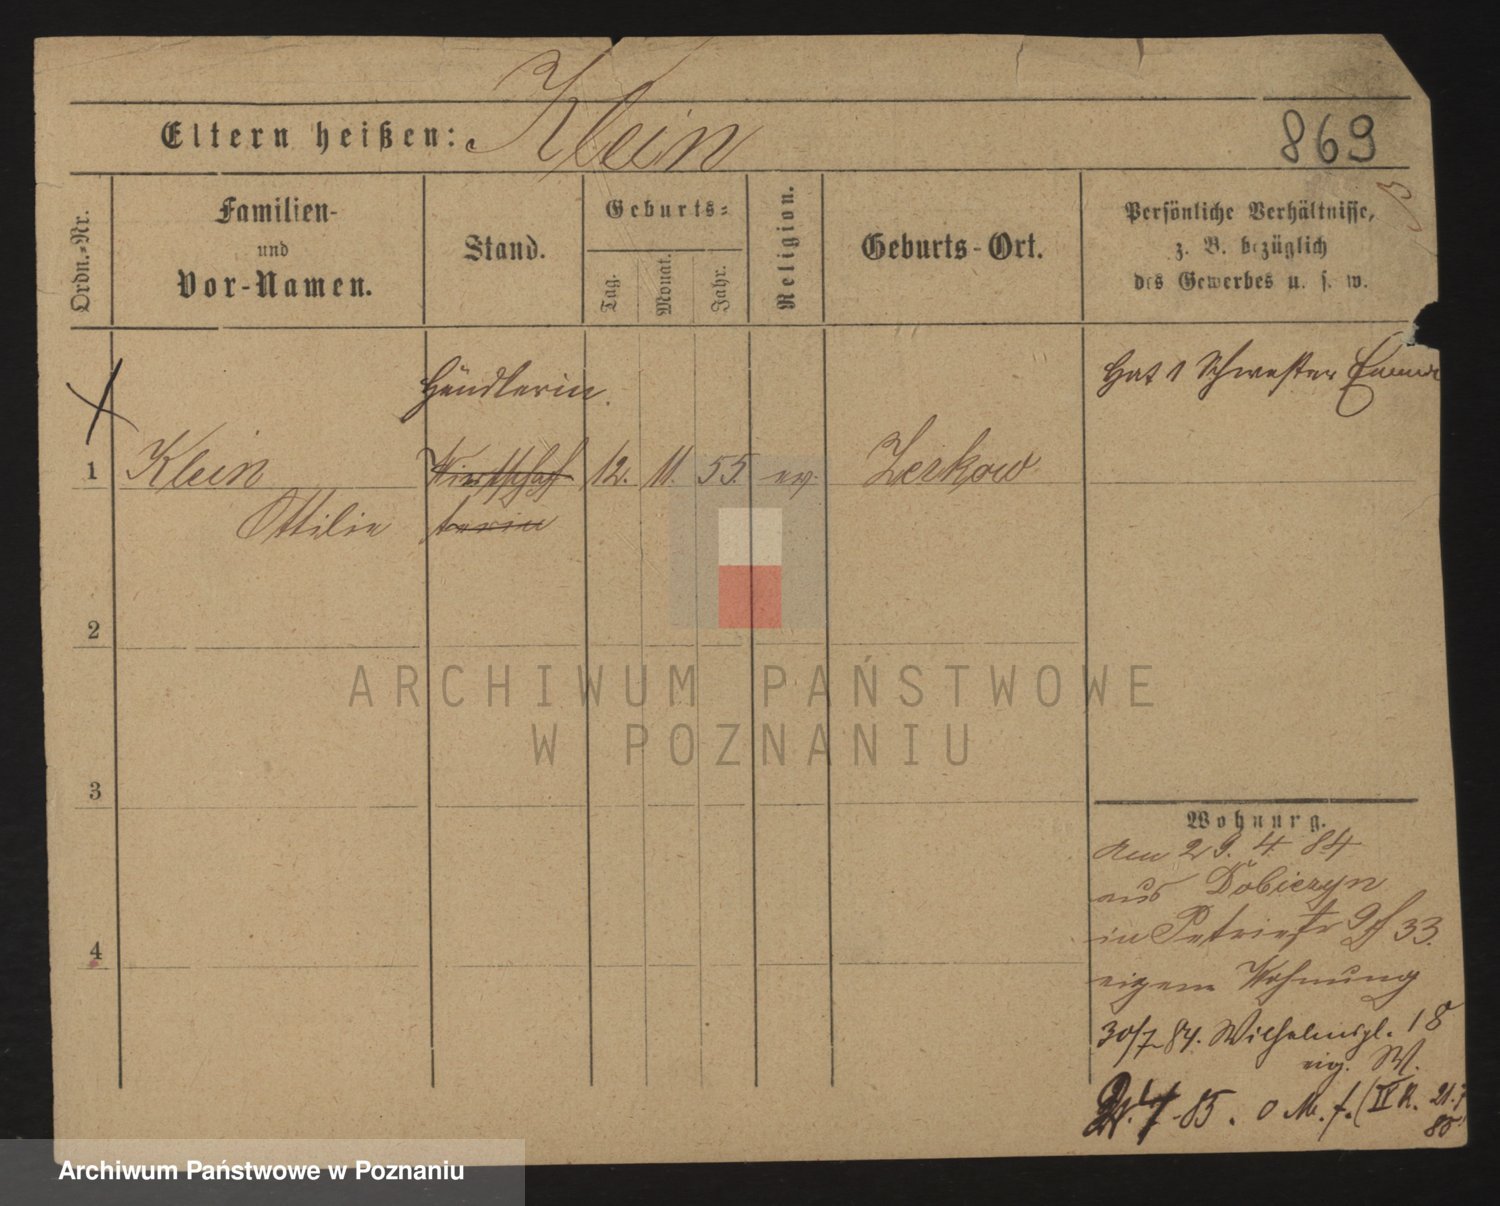 Eltern heißen: Klein
869
Ordn.-Nr.
Familien-
und
Vor-Namen.
Stand.
Geburts-
Tag.
Monat.
Jahr.
Religion.
Geburts-Ort.
Persönliche Verhältnisse,
z. B. bezüglich
des Gewerbes u. s. w.
Händlerin.
Hat 1 Schwester Emma
1 Klein Wirthschaf 12. 11. 55. ev. Zerkow
Ottilie terin
2
3
4
Wohnung.
Am 29. 4 84
aus Dobiezyn
in Petristr 9 33.
eigene Wohnung
30/7 84. Wilhelmspl. 18
eig. W.
7-85. o M. f. (IV R. 21.7
85
ARCHIWUM PAŃSTWOWE
W POZNANIU
Archiwum Państwowe w Poznaniu